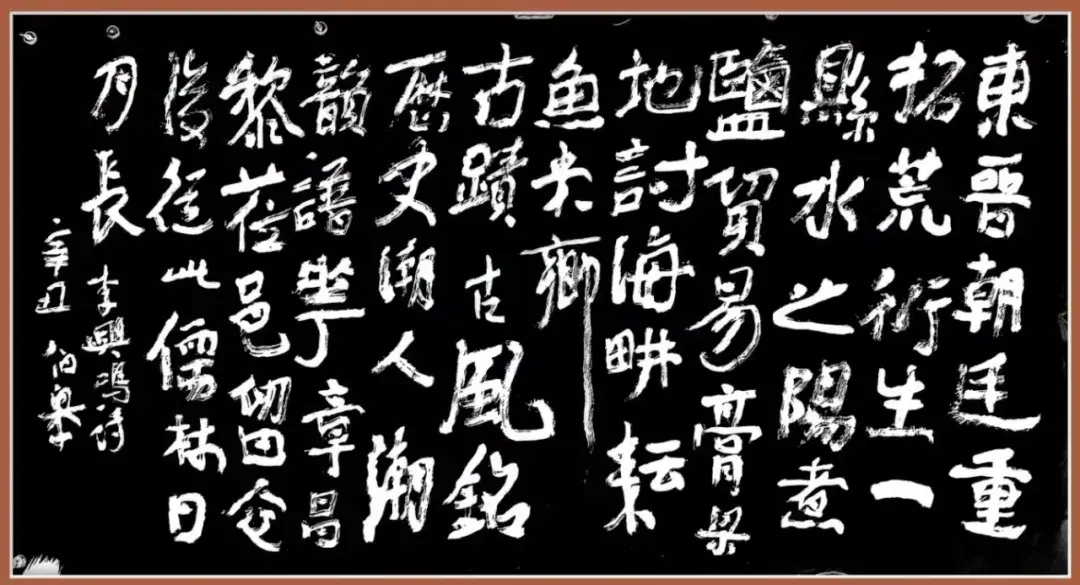 東晉朝廷重
招荒衍生一
縣水之陽煮
鹽貿易膏粱
地討海畊耘
魚米鄉
古蹟古風銘
歷史潮人潮
韻譜華章昌
黎蒞邑留念
後從此儒林日
月長 李興鳴詩
辛丑 伯